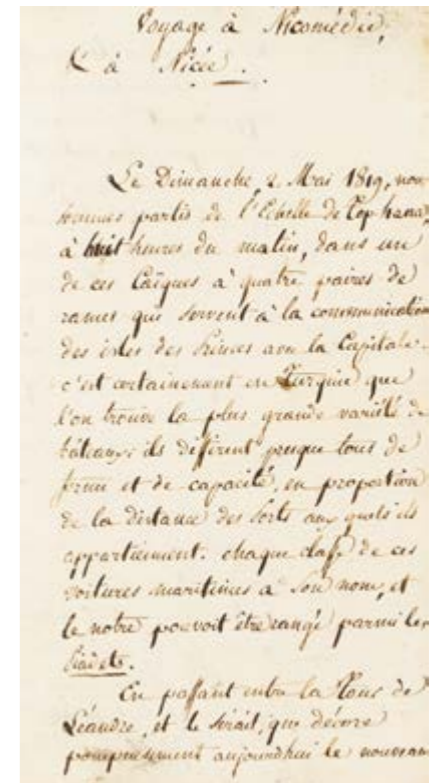 Voyage à Nicomédie,
& à Nicée.
Le Dimanche, 2 Mai 1819, nous
sommes partis de l'Echelle de Tophana,
à huit heures du matin, dans un
de ces Caïques à quatre paires de
rames qui servent à la communication
des isles des Princes avec la Capitale.
c'est certainement en Turquie que
l'on trouve la plus grande variété de
bâteaux: ils différent presque tous de
forme et de capacité, en proportion
de la distance des Ports aux quels ils
appartiennent. chaque classe de ces
voitures maritimes a son nom, et
le notre pouvoit être rangé parmi les
En passant entre la Tour de
Léandre, et le sérail, que décore
pompeusement aujourdhui le nouveau